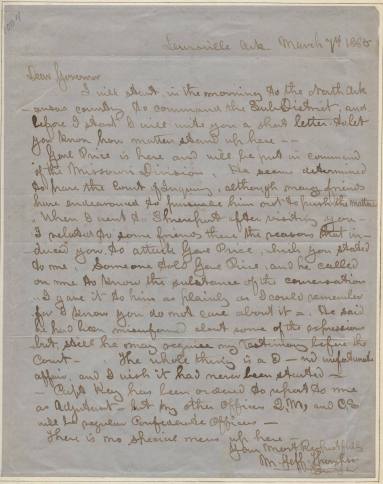 Lewisville Ark March 7th 1865
Dear Governor
I will start in the morning to the North Ark
ansas country to command the Sub District, and
before I start I will write you a short letter to let
you know how matters stand up here —
Genl Price is here and will be put in command
of the Missouri Division. He seems determined
to have the Court of Inquiry, although many friends
have endeavored to persuade him not to push the matter
When I went to Shreveport after visiting you —
I related to some friends there the reasons that in-
duced you to attack Genl Price, which you stated
to me. Someone told Genl Price, and he called
on me to know the substance of the conversation
I gave it to him as plainly as I could remember
for I know you do not care about it — He said
he had been misinformed about some of the expressions
but still he may require my testimony before the
Court — The whole thing is a D—nd unfortunate
affair, and I wish it had never been started —
Capt Key has been ordered to report to me
as Adjutant — but my other Officers Q.M. and C.S.
will be regular Confederate Officers —
There is no special news up here —
Your Most Respectfully
M. Jeff Thompson